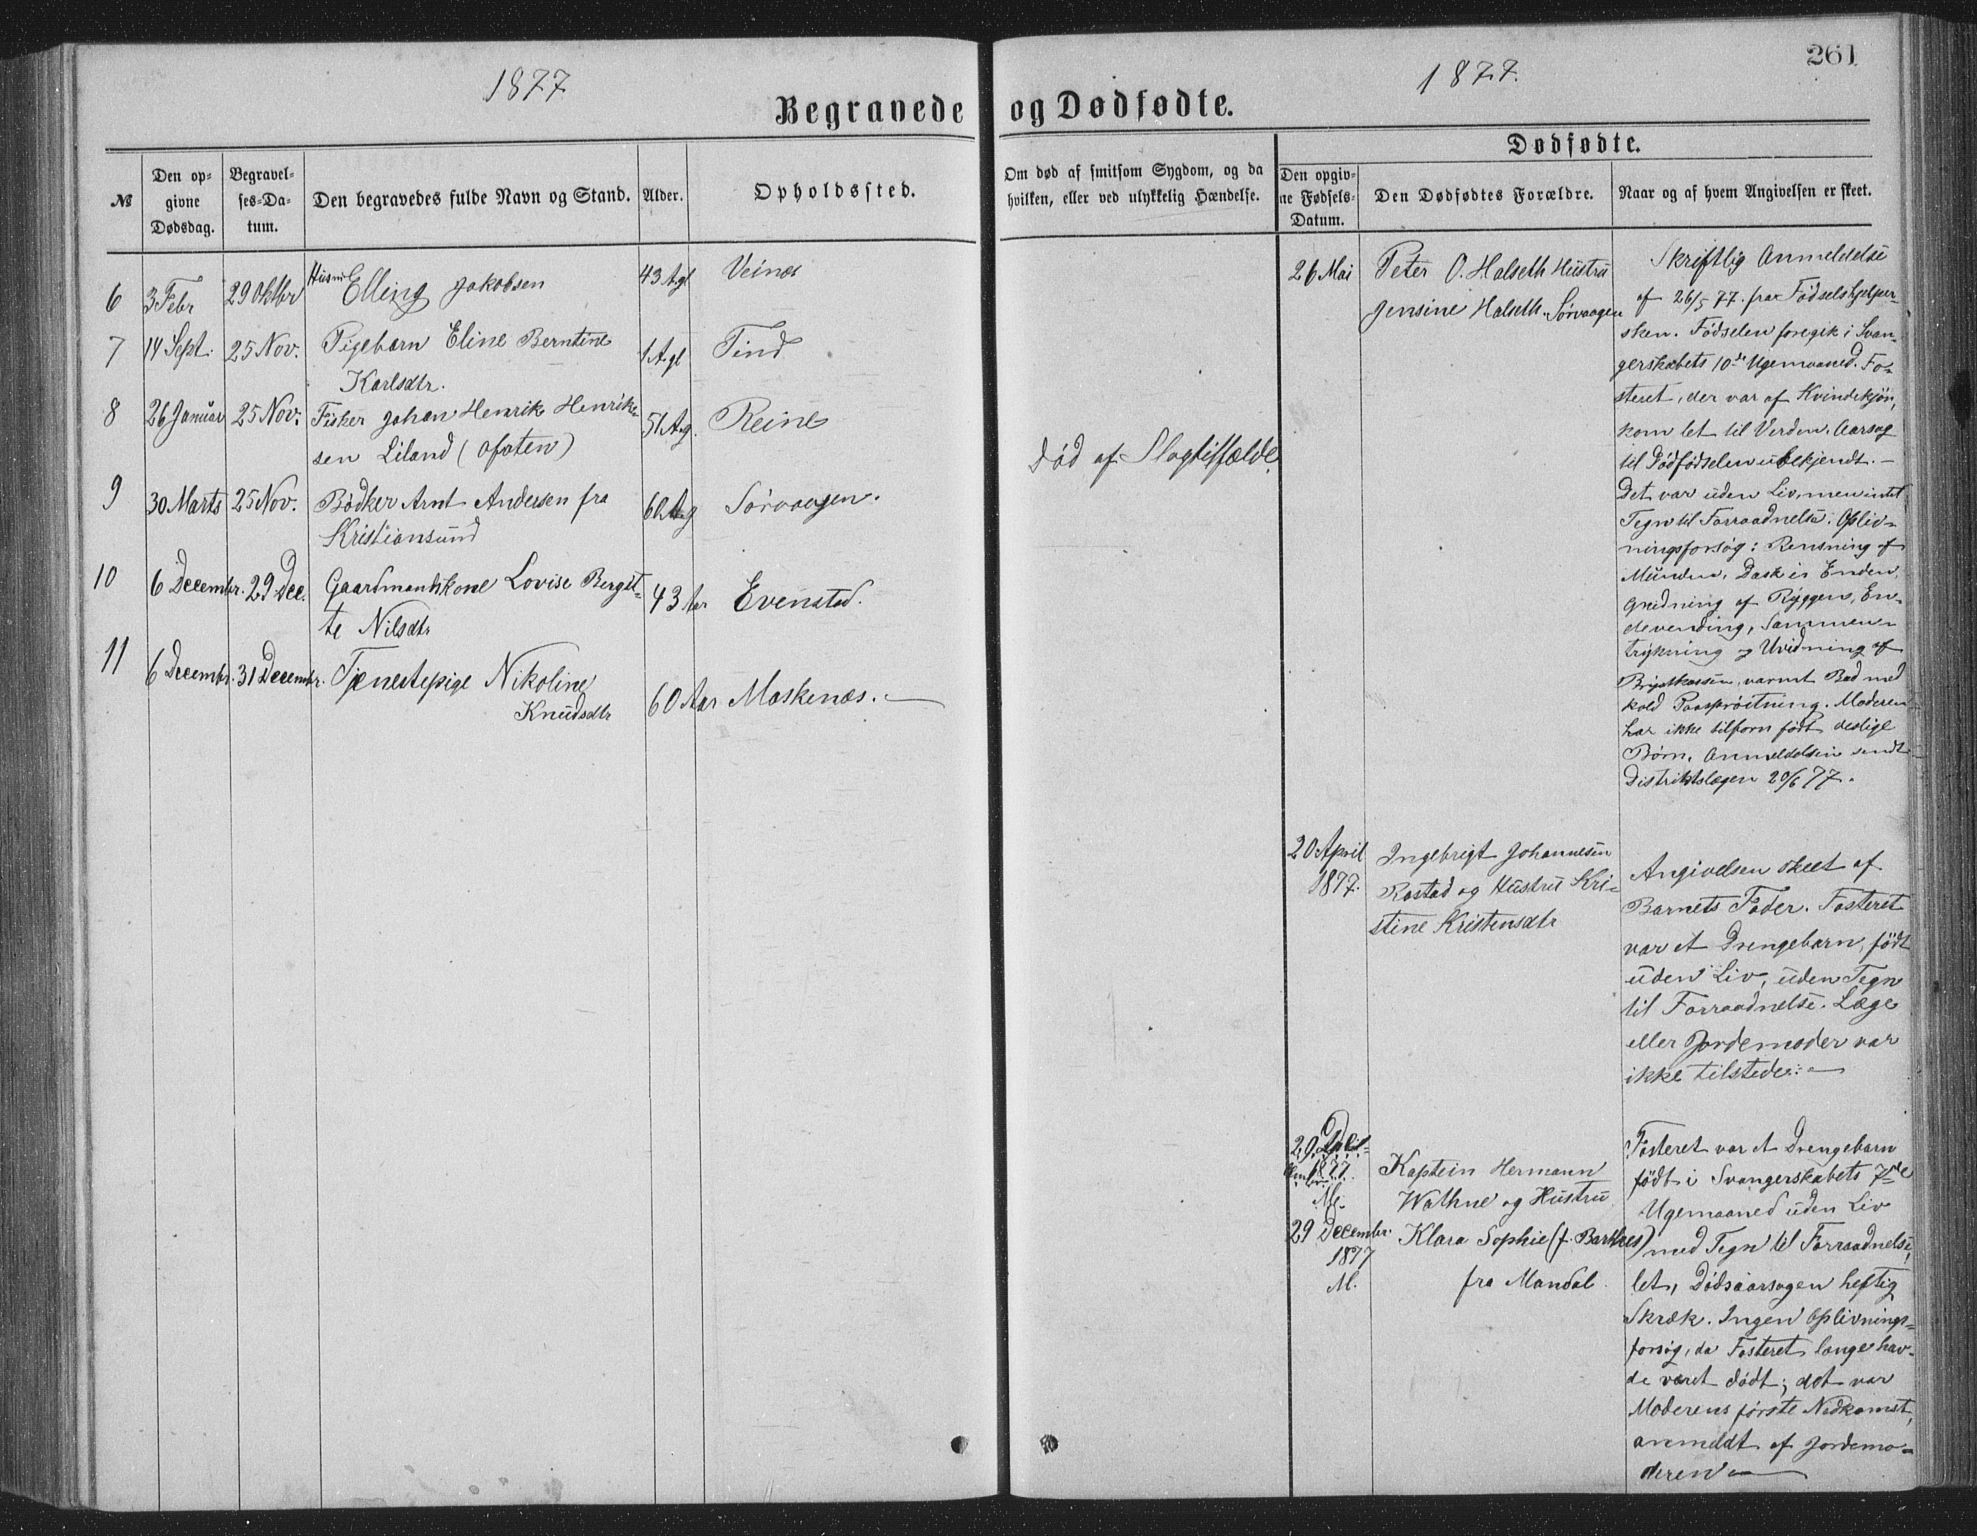 1877
Begravede
№
Den op-
givne
Dødsdag.
Begravel-
ses-Da-
tum.
Den begravedes fulde Navn og Stand.
Alder.
Opholdssted.
6 3 Febr 29 Oktbr Husm Elling Jakobsen 43 A.gl Veinæs
7 14 Sept. 25 Nov. Pigebarn Eline Berntine 1 A.gl Tind
Karlsdtr.
8 26 Januar 25 Nov. Fisker Johan Henrik Henrik- 51 A.g. Reine
sen Liland (Ofoten)
9 30 Marts 25 Nov. Bødker Arnt Andersen fra 60 A.g Sørvaagen.
Kristiansund
10 6 Decembr. 29 Dec. Gaardmandskone Lovise Bergit- 43 Aar Evenstad.
te Nilsdtr
11 6 Decembr. 31 Decembr. Tjenestepige Nikoline
Knudsdtr 60 Aar Moskenæs.
1877.
261
og Dødfødte.
Dødfødte.
Om død af smitsom Sygdom, og da
hvilken, eller ved ulykkelig Hændelse.
Den opgiv-
ne Fødsels-
Datum.
Den Dødfødtes Forældre.
Naar og af hvem Angivelsen er skeet.
Død af Slagtilfælde
26 Mai
Peter O. Halseth Hustru
Jensine Halseth. Sørvaagen
Skriftlig Anmeldelse
af 26/5 77. fra Fødselshjelper-
sken. Fødselen foregik i Svan-
gerskabets 10de Ugemaaned. Fo-
steret, der var af Kvindekjøn,
kom let til Verden. Aarsag
til Dødfødselen ubekjendt. —
Det var uden Liv, men intet
Tegn til Forraadnelse. Opliv-
ningsforsøg: Rensning af
Munden, Dask i Enden,
Gnidning af Ryggen, En-
devending, Sammen-
trykning og Uvidning af
Brystkassen, varmt Bad med
kold Paasprøitning. Moderen
har ikke tilforn født deslige
Børn. Anmeldelsen sendt
Distriktslægen 20/6 77.
20 April
1877.
Ingebrigt Johannesen
Rostad og Hustru Kri-
stine Kristensdtr
Angivelsen skeet af
Barnets Fader. Fosteret
var et Drengebarn, født
uden Liv, uden Tegn
til Forraadnelse. Læge
eller Jordemoder var
ikke tilstede. —
29
1877.
M.
29 Decembr.
1877
M.
Kaptein Hermann
Wathne og Hustru
Klara Sophie (f. Barthes)
fra Mandal.
Fosteret var et Drengebarn
født i Svangerskabets 7de
Ugemaaned uden Liv
med Tegn til Forraadnelse,
let, Dødsaarsagen heftig
Skræk. Ingen Oplivnings-
forsøg, da Fosteret længe hav-
de været dødt; det var
Moderens første Nedkomst,
anmeldt af Jordemo-
deren —